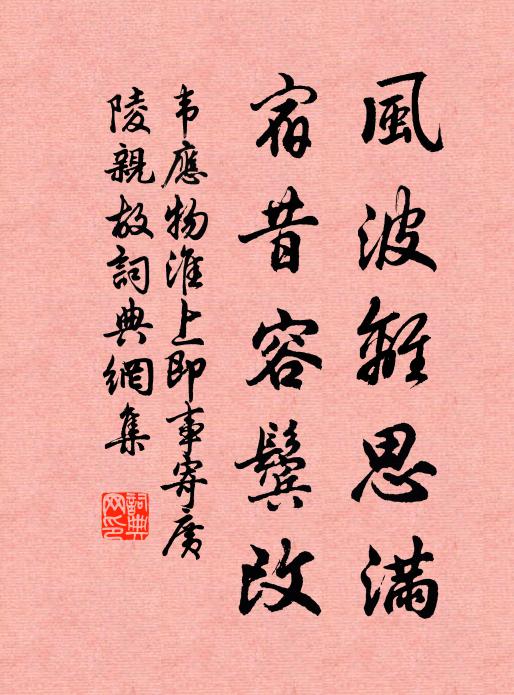 風波離思滿
宿昔容鬢改
韦應物淮上即事寄廣
陵親故詞典網集
詞典網印